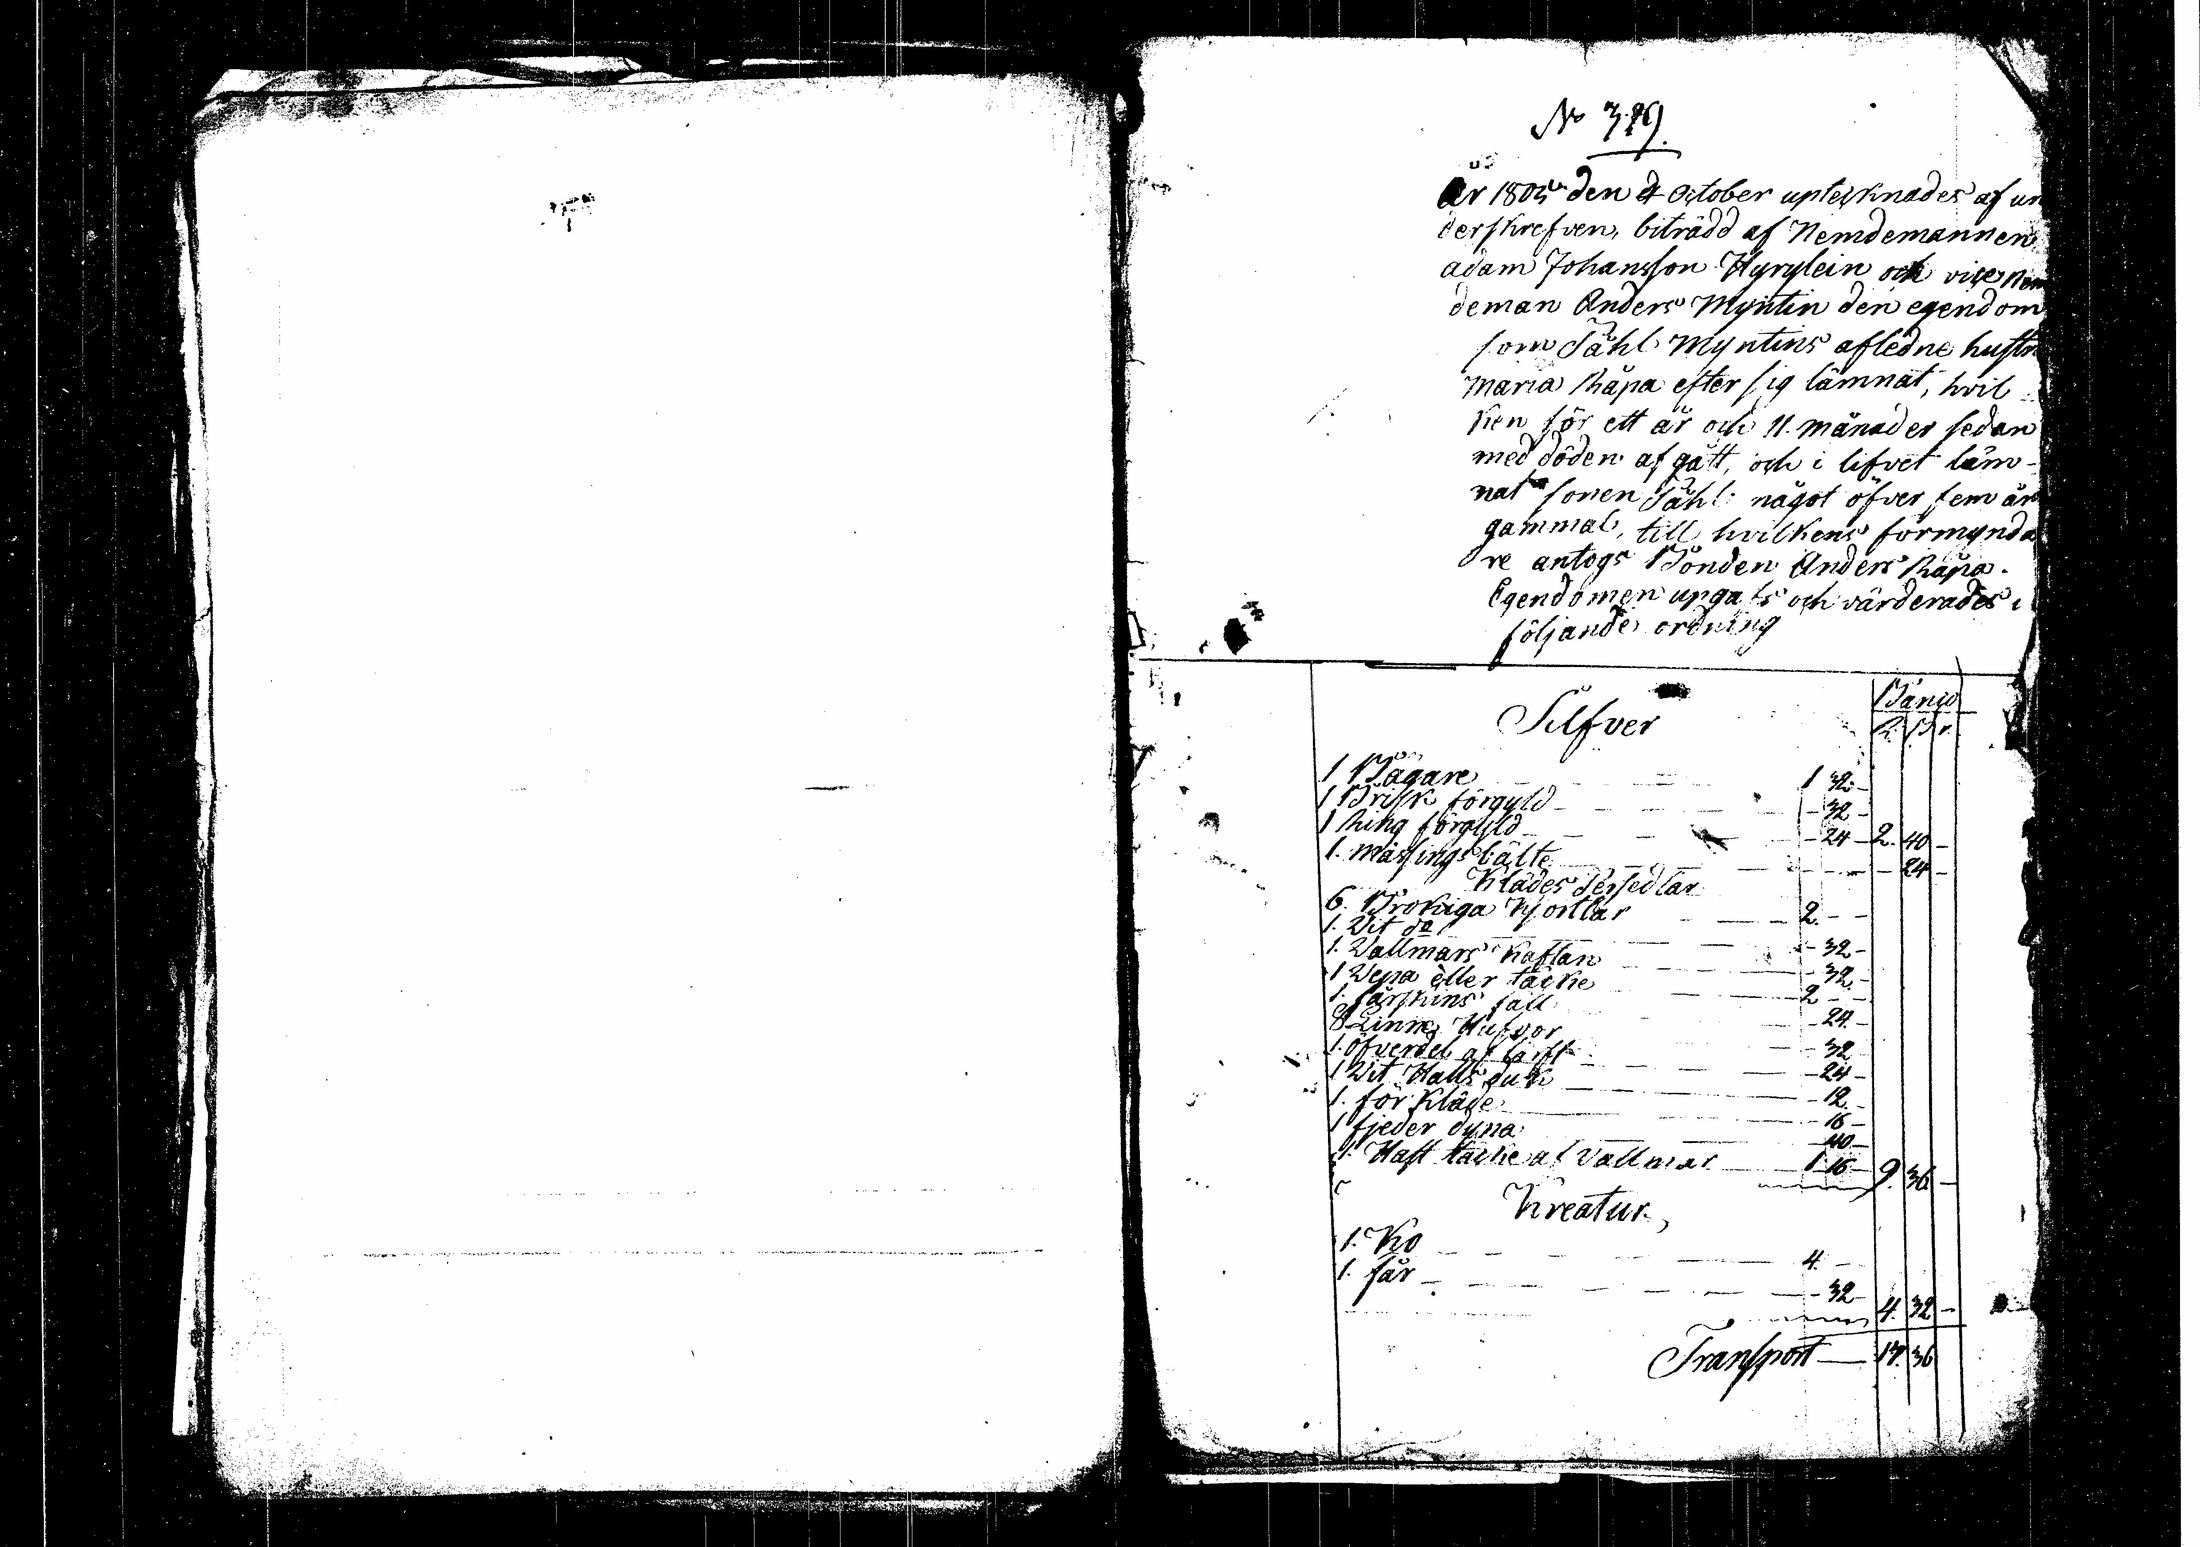 No 319.
År 1805 den 4 October uptecknades af un
derskrefven, biträdd af Nemdemannen
adam Johansson Hyrylein och vice Nem
deman Anders Myntin den egendom
som Påhl Myntins afledne hustru
Maria Räpa efter sig lämnat, hvil
ken för ett år och 11. månader sedan
med döden afgått, och i lifvet läm-
nat sonen Påhl något öfver fem år
gammal, till hvilkens förmynda
re antogs Bonden Anders Räpa.
Egendomen upgafs och värderades i
följande ordning
Silfver Banco
R. S. r.
1 Bägare 1 32.-
1 Brisk förgyld - 32 -
1 Ring förgyld - 24 - 2. 40 -
1. mässings bälte - 24 -
Klädes Persedlar
6. Brokiga Kjortlar 2. - -
1. Vit do - 32 -
1. Vallmars Kaftan - 32 -
1 Vepa eller täcke 2 - -
1. fårskins fäll - 24. -
8 Linne Hufvor - 32
1. öfverdel af lärft - 24 -
1 Vit Halls duk - 12. -
1. för Kläde - 16 -
1 fjeder dyna - 40 -
1. Häst täcke af vallmar 1 16 - 9. 36 -
Kreatur,
1. Ko 4. -
1. får - 32 -
4. 32 -
Transport — 17. 36